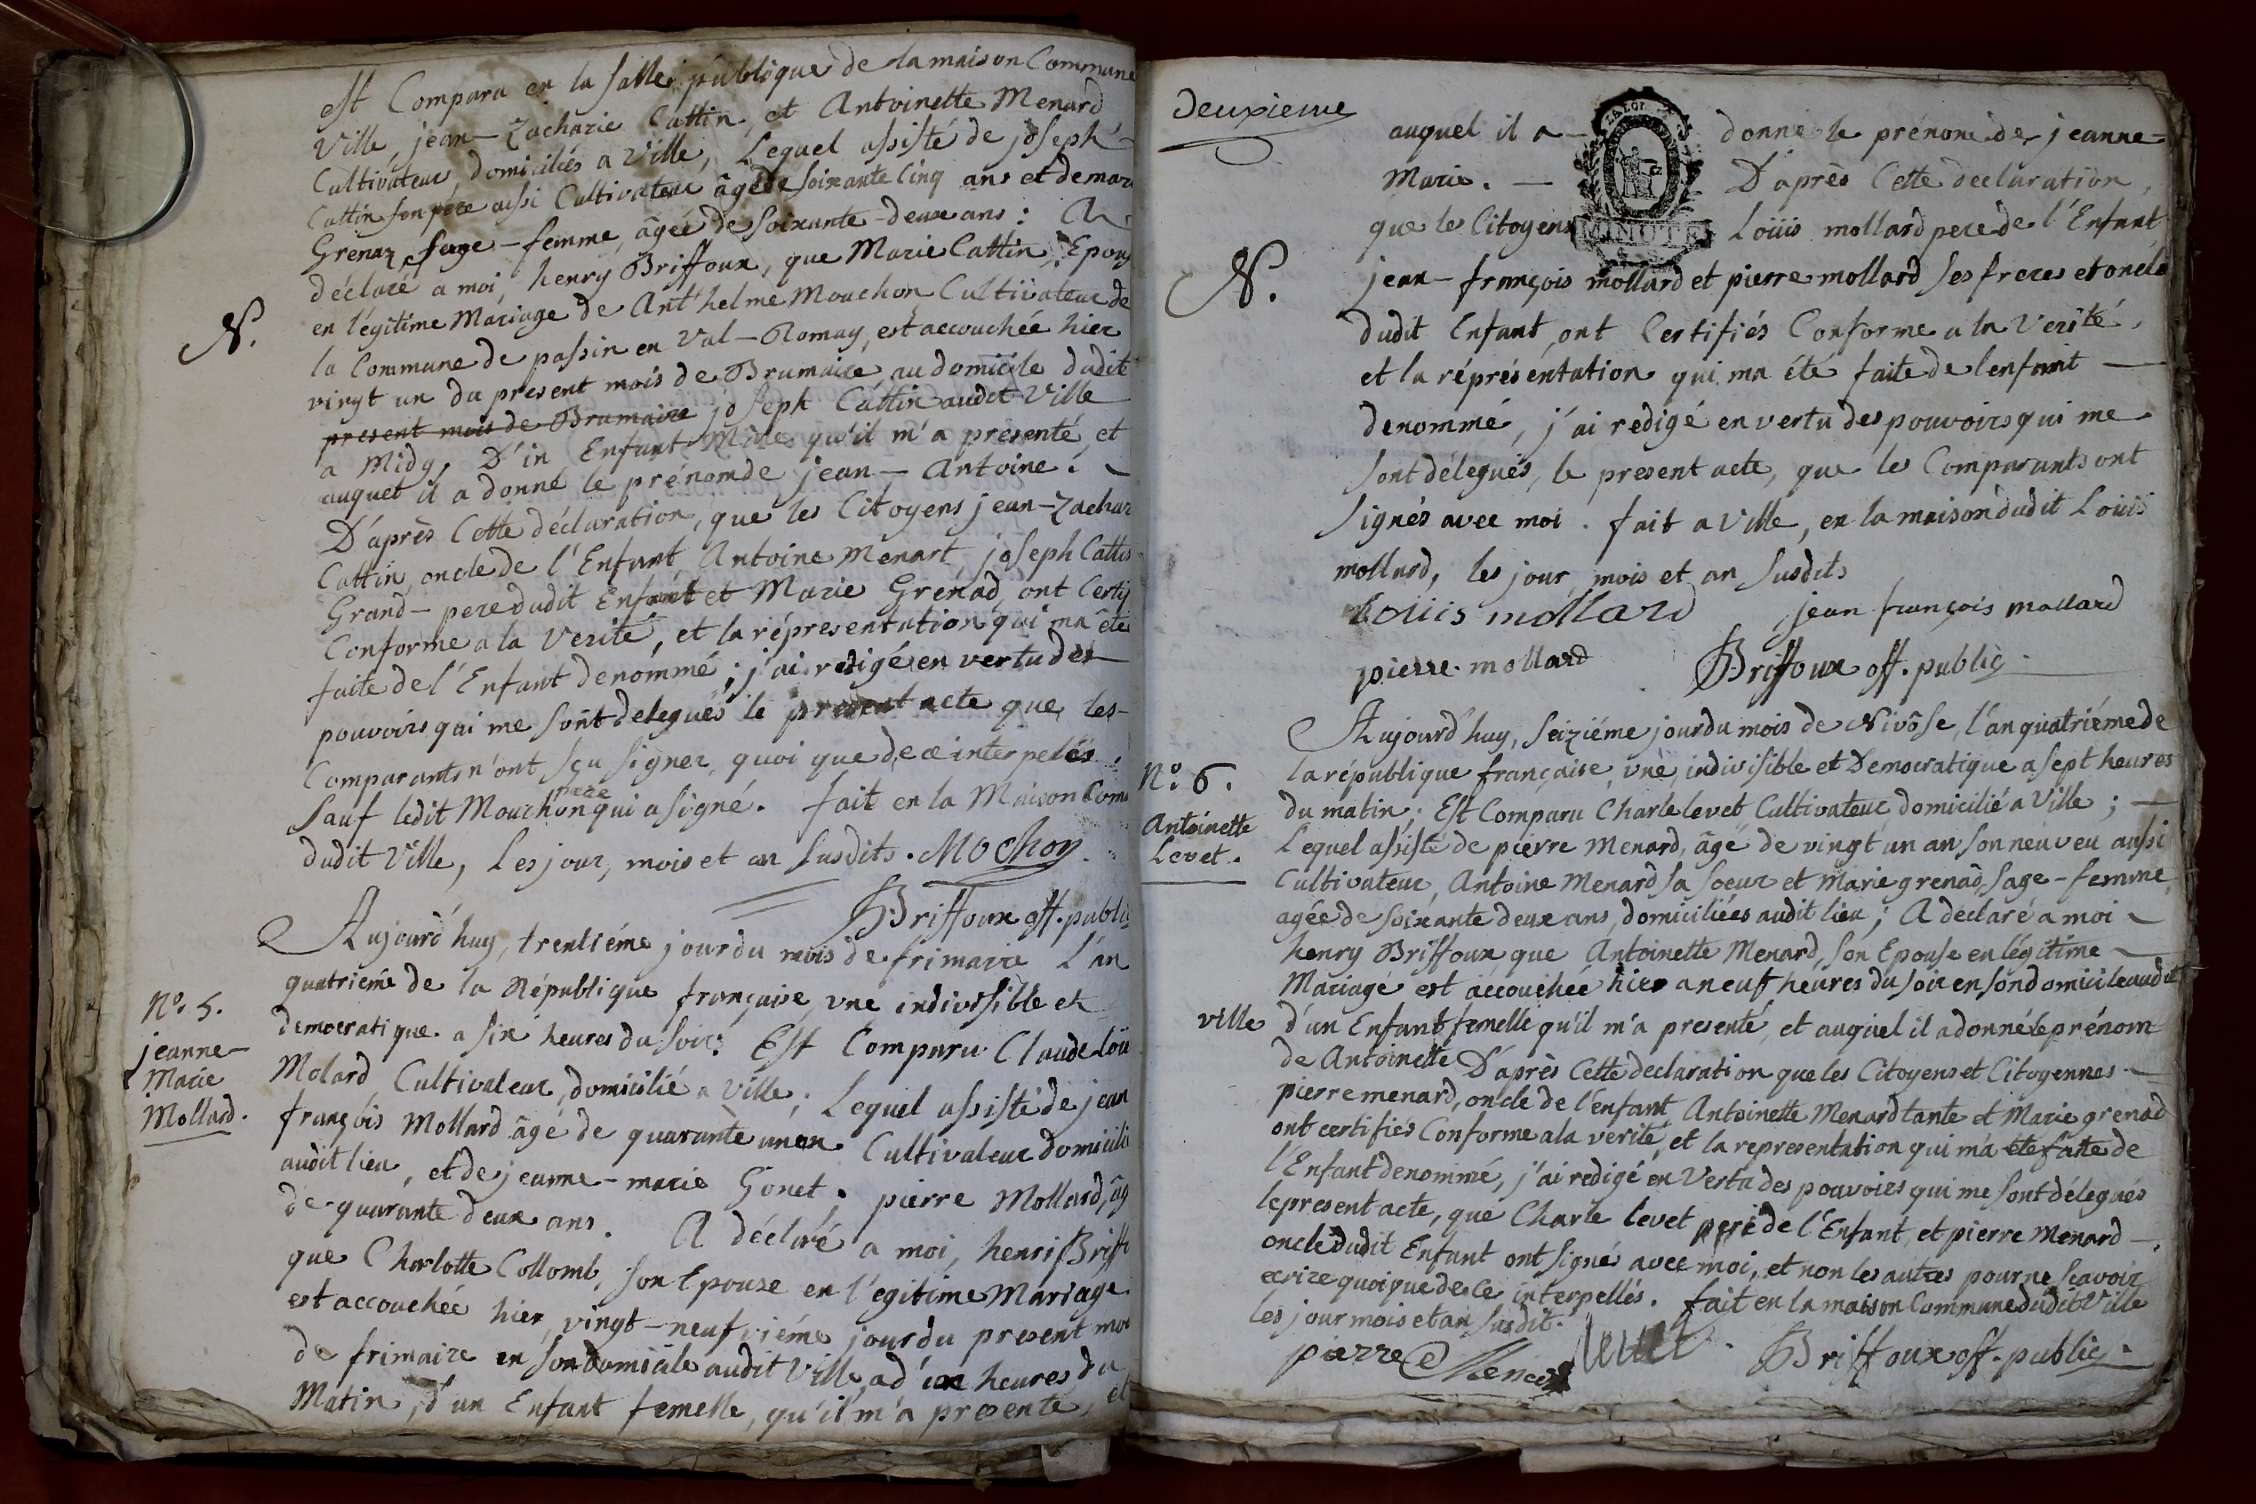 est Comparu en la salle publique de la maison Commune
Ville, jean-Zacharie Cattin, et Antoinette Menard
Cultivateur domiciliés a Ville, Lequel assisté de joseph
Cattin son père aussi Cultivateur âgé de soixante Cinq ans et de mar
Grenaz sage-femme, âgée de soixante-deux ans : A
déclaré a moi, henry Briffoux, que Marie Cattin, Epous
en l'égitime Mariage de Anthelme Mouchon Cultivateur de
N.
la Commune de passin en Val-Romay, est accouchée hier
vingt un du present mois de Brumaire au domicile dudit
present mois de Brumaire joseph Cattin audit Ville
a Midy, D'in Enfant Mâle qu'il m'a presenté, et
auquel il a donné le prénom de jean-Antoine.
D'après Cette déclaration, que les Citoyens jean-Zachar
Cattin, oncle de l'Enfant Antoine Menart, joseph Cattin
Grand-pere dudit Enfant et Marie Grenad, ont Certif
Conforme a la Verité, et la répresentation qui m'a été
faite de l'Enfant denommé ; j'ai redigé en vertu des
pouvoirs qui me sont delegués le present acte que les
Comparants n'ont sçu signer, quoi que de ce interpelés,
pere
Sauf ledit Mouchon qui a signé. fait en la Maison Com
dudit Ville, Les jour, mois et an susdits. Mochon
Briffoux off. public
Aujourd'huy, trentiéme jour du mois de frimaire L'an
quatriéme de la République française, une indivisible et
N.º 5.
jeanne-
Marie
Mollard.
democratique a six heures du soir: Est Comparu Claude loü
Molard Cultivateur, domicilié a Ville ; Lequel assisté de jean
françois Mollard âgé de quarante un an Cultivateur domicili
audit lieu, et de jeanne-marie Gonet. pierre Mollard, âg
de quarante deux ans. A déclaré a moi, henri Briff
que Charlotte Collomb, son Epouse en l'égitime Mariage
est accouchée hier, vingt-neufviéme jour du present moi
de frimaire en son domicile audit Ville a d'ix heures du
Matin, d'un Enfant femelle, qu'il m'a presenté, et
Deuxieme
auquel il a donné le prénom de jeanne-
Marie. D'après Cette declaration,
que les Citoyens Loüis mollard pere de l'Enfant,
MINUTE
N.
jean-françois mollard et pierre mollard ses freres et oncle
dudit Enfant, ont Certifiés Conforme a la Verité,
et la répresentation qui m'a été faite de l'enfant
denommé, j'ai redigé en vertu des pouvoirs qui me
sont délegués, le present acte, que les Comparants ont
signés avec moi. fait a Ville, en la maison dudit Loüis
mollard, les jour, mois et an susdits
Louis mollard jean françois mollard
pierre mollard Briffoux off. public
Aujourd'huy, seiziéme jour du mois de Nivôse, l'an quatriéme de
la république française, une, indivisible et Democratique a sept heures
N.º 6.
Antoinette
Levet.
du matin; Est Comparu Charle levet Cultivateur domicilié a Ville ;
Lequel assisté de pierre Menard, âgé de vingt un an son neuveu aussi
Cultivateur, Antoine Menard sa soeur et Marie grenad, sage-femme,
agée de soixante deux ans, domiciliées audit lieu ; A declaré a moi
henry Briffoux que Antoinette Menard, son Epouse en légitime
Mariagé est accouchée hier a neuf heures du soir en son domicile audit
ville d'un Enfant femelle qu'il m'a presenté, et auquel il a donné le prénom
de Antoinette D'après Cette declaration que les Citoyens et Citoyennes
pierre menard, oncle de l'enfant, Antoinette Menard tante et Marie grenad
ont certifiés Conforme a la verité, et la representation qui m'a été faite de
l'Enfant denommé, j'ai redigé en Vertu des pouvoirs qui me sont délegués
le present acte, que Charle levet pere de l'Enfant, et pierre Menard
oncle dudit Enfant ont signés avec moi, et non les autres pour ne sçavoir
ecrire quoique de ce interpellés. fait en la maison Commune dudit Ville
les jour mois et an susdit.
pierre levet Briffoux off. public.